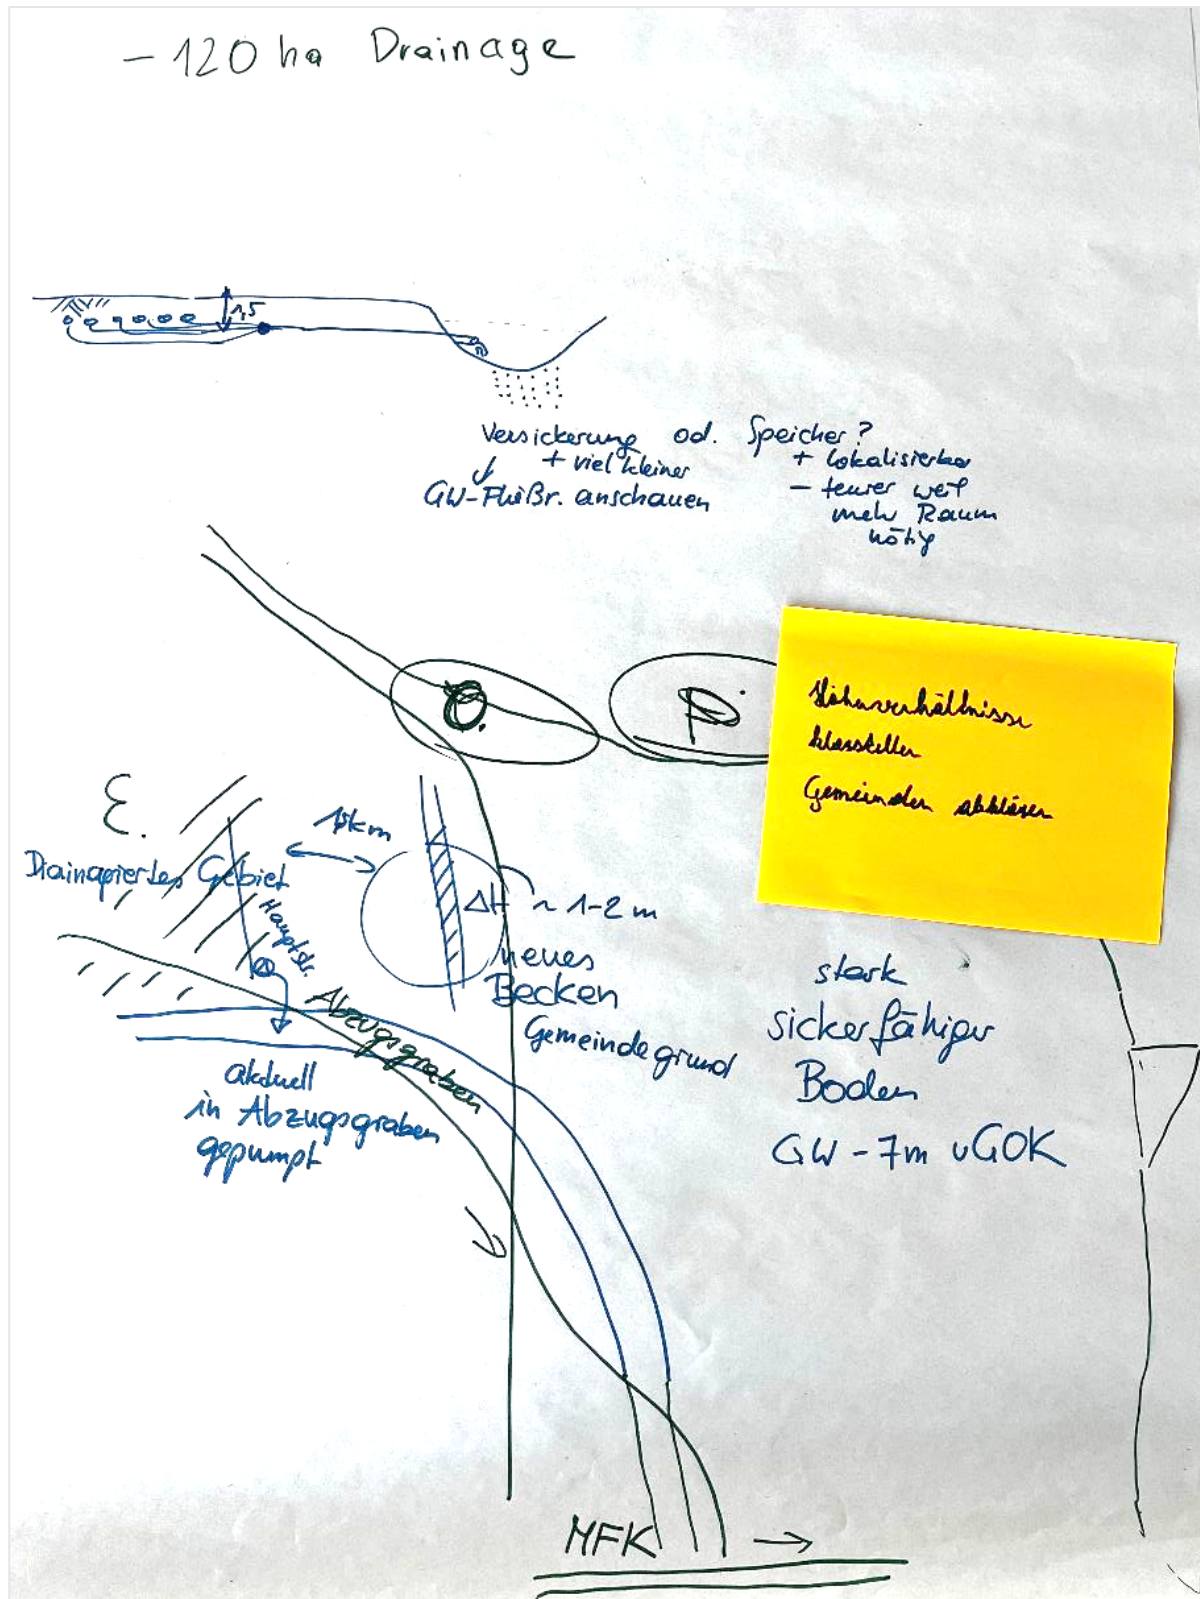 - 120 ha Drainage
1,5
Versickerung od. Speicher?
+ viel kleiner
GW-Fließr. anschauen
+ lokalisierbar
- teurer weil
mehr Raum
nötig
Höhenverhältnisse
klarstellen
Gemeinden abklären
E.
Drainagiertes Gebiet
Hauptstr.
km
ΔH ~ 1-2 m
neues
Becken
Gemeindegrund
Abzugsgraben
aktuell
in Abzugsgraben
gepumpt
stark
sickerfähiger
Boden
GW - 7m uGOK
MFK